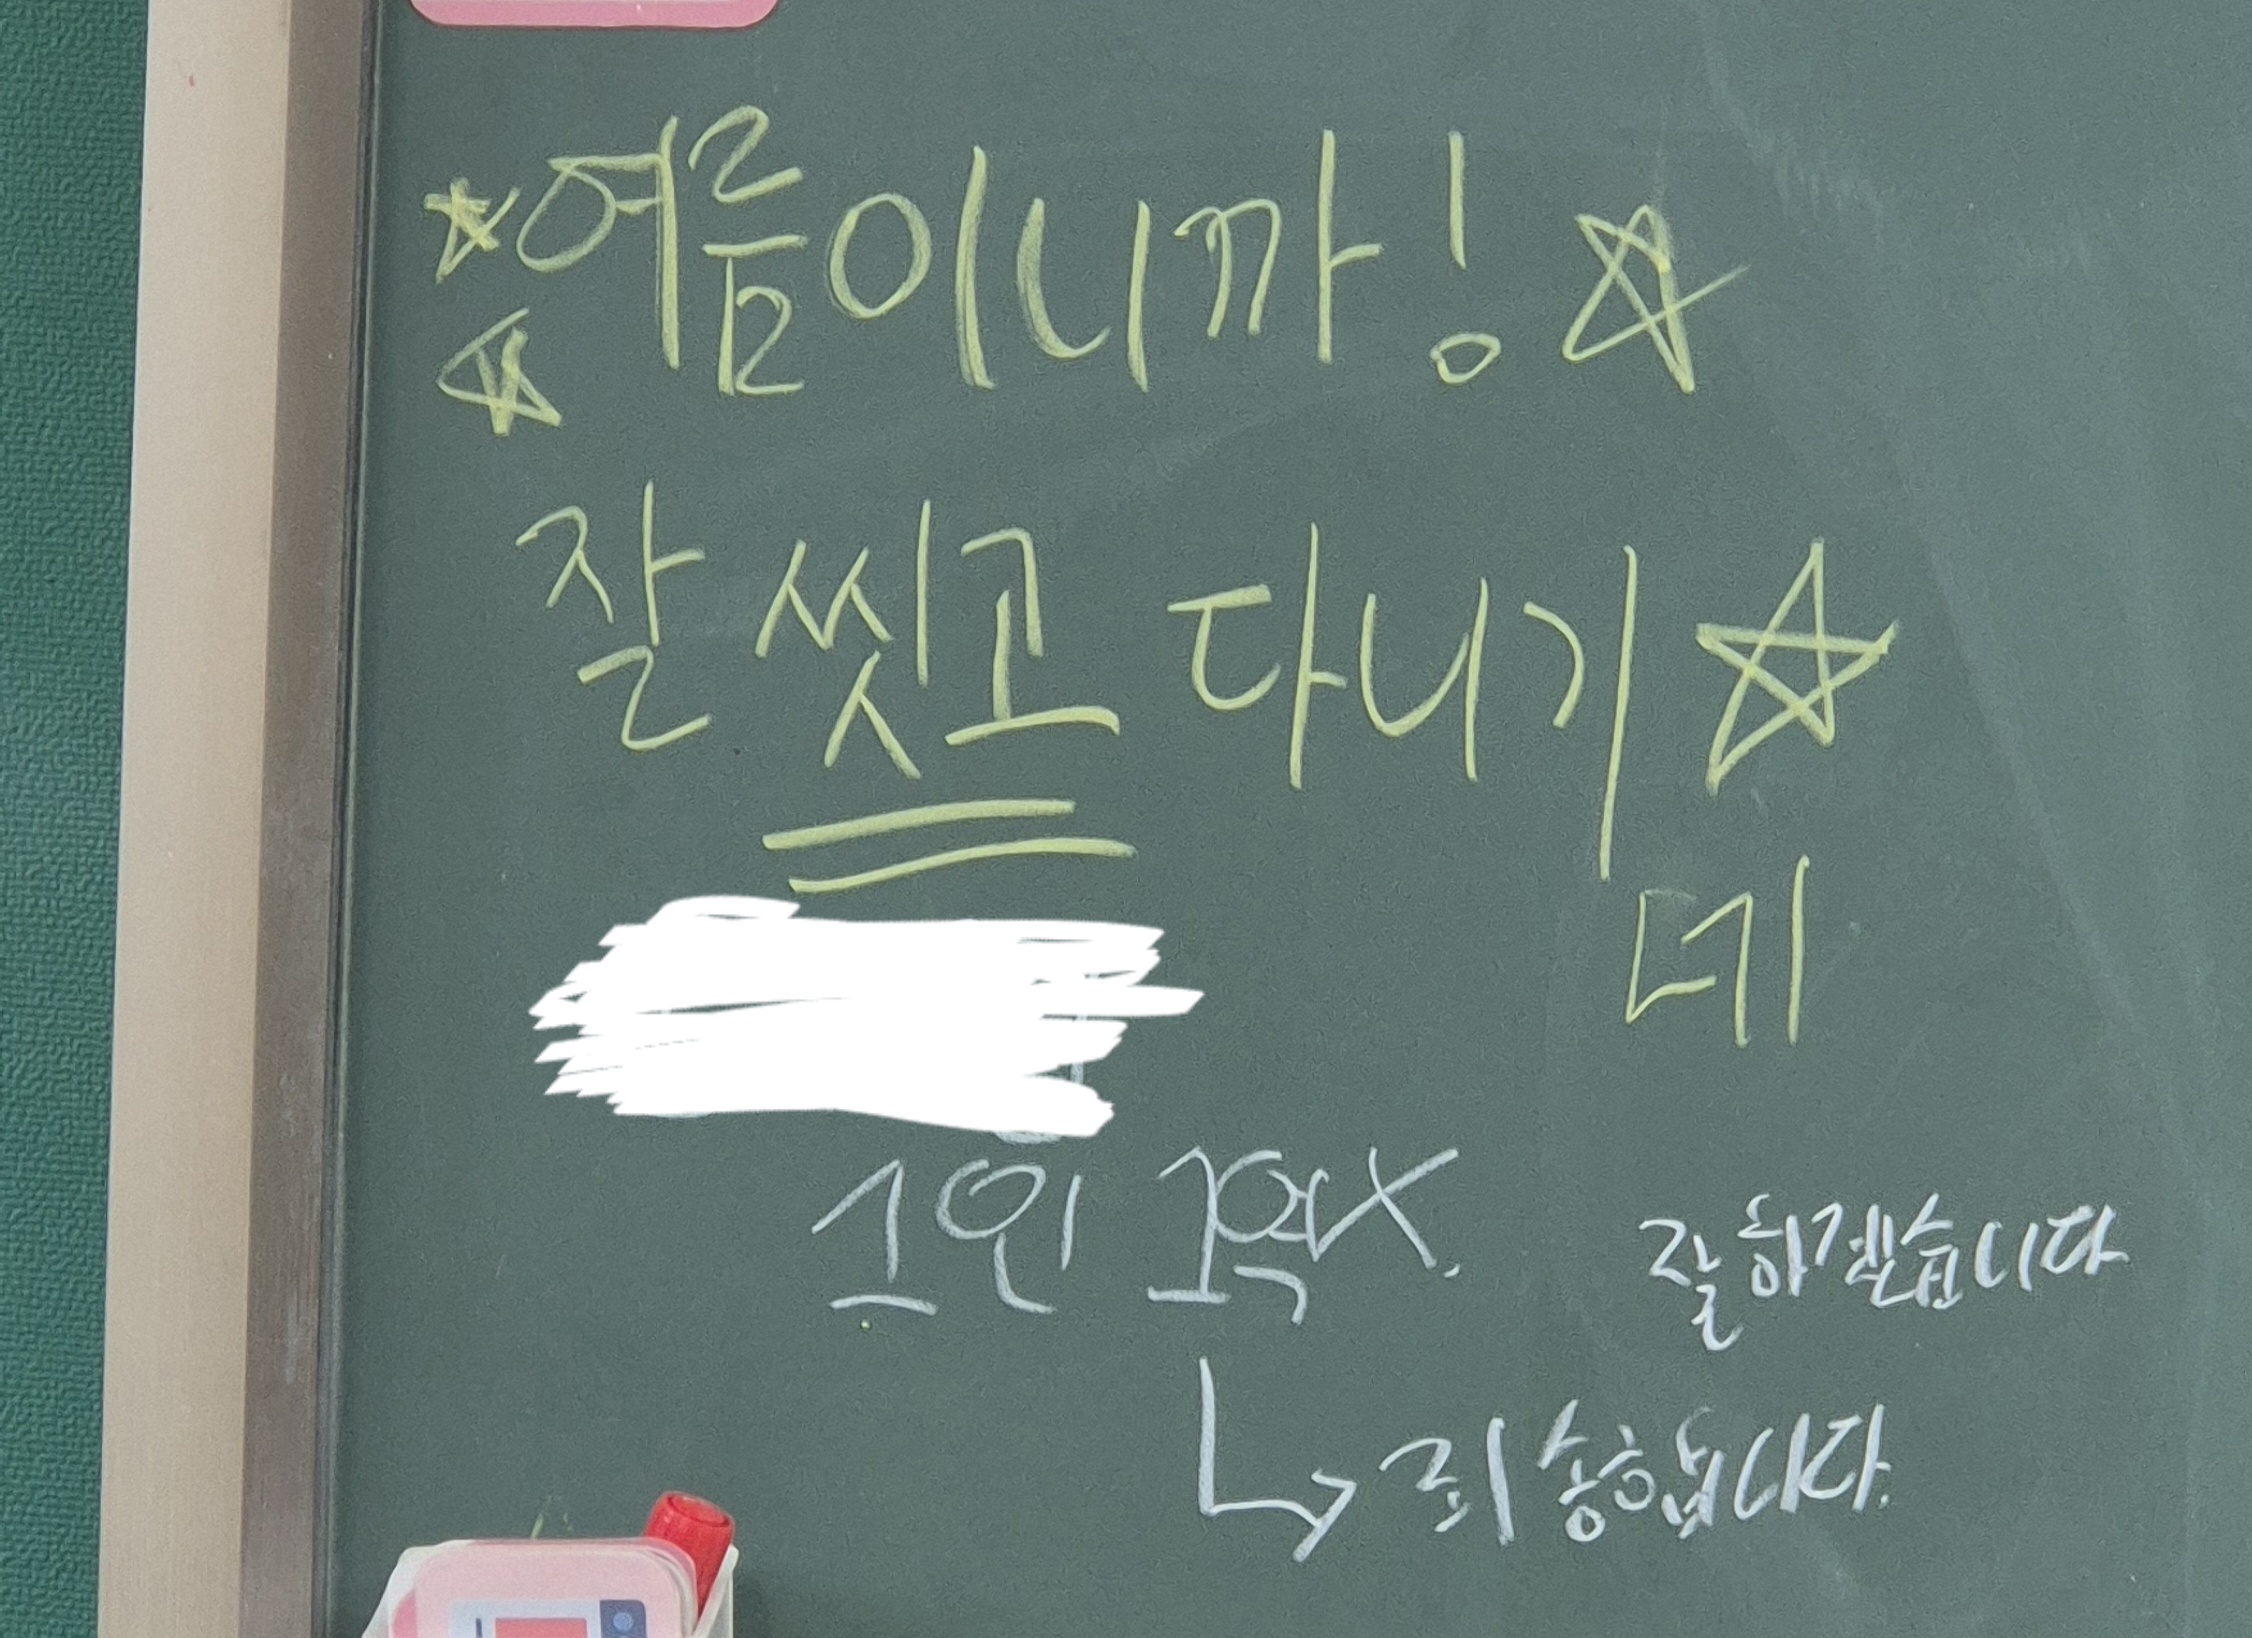 ☆여름이니까!☆
☆
잘 씻고 다니기☆
데
1인 1역X.
잘하겠습니다
↳ 죄송합니다.